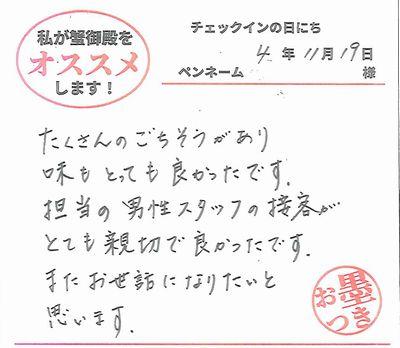 私が蟹御殿を
オススメ
します!
チェックインの日にち
4年11月19日
ペンネーム 様
たくさんのごちそうがあり
味もとっても良かったです.
担当の男性スタッフの接客が
とても親切で良かったです.
またお世話になりたいと
思います.
お墨つき